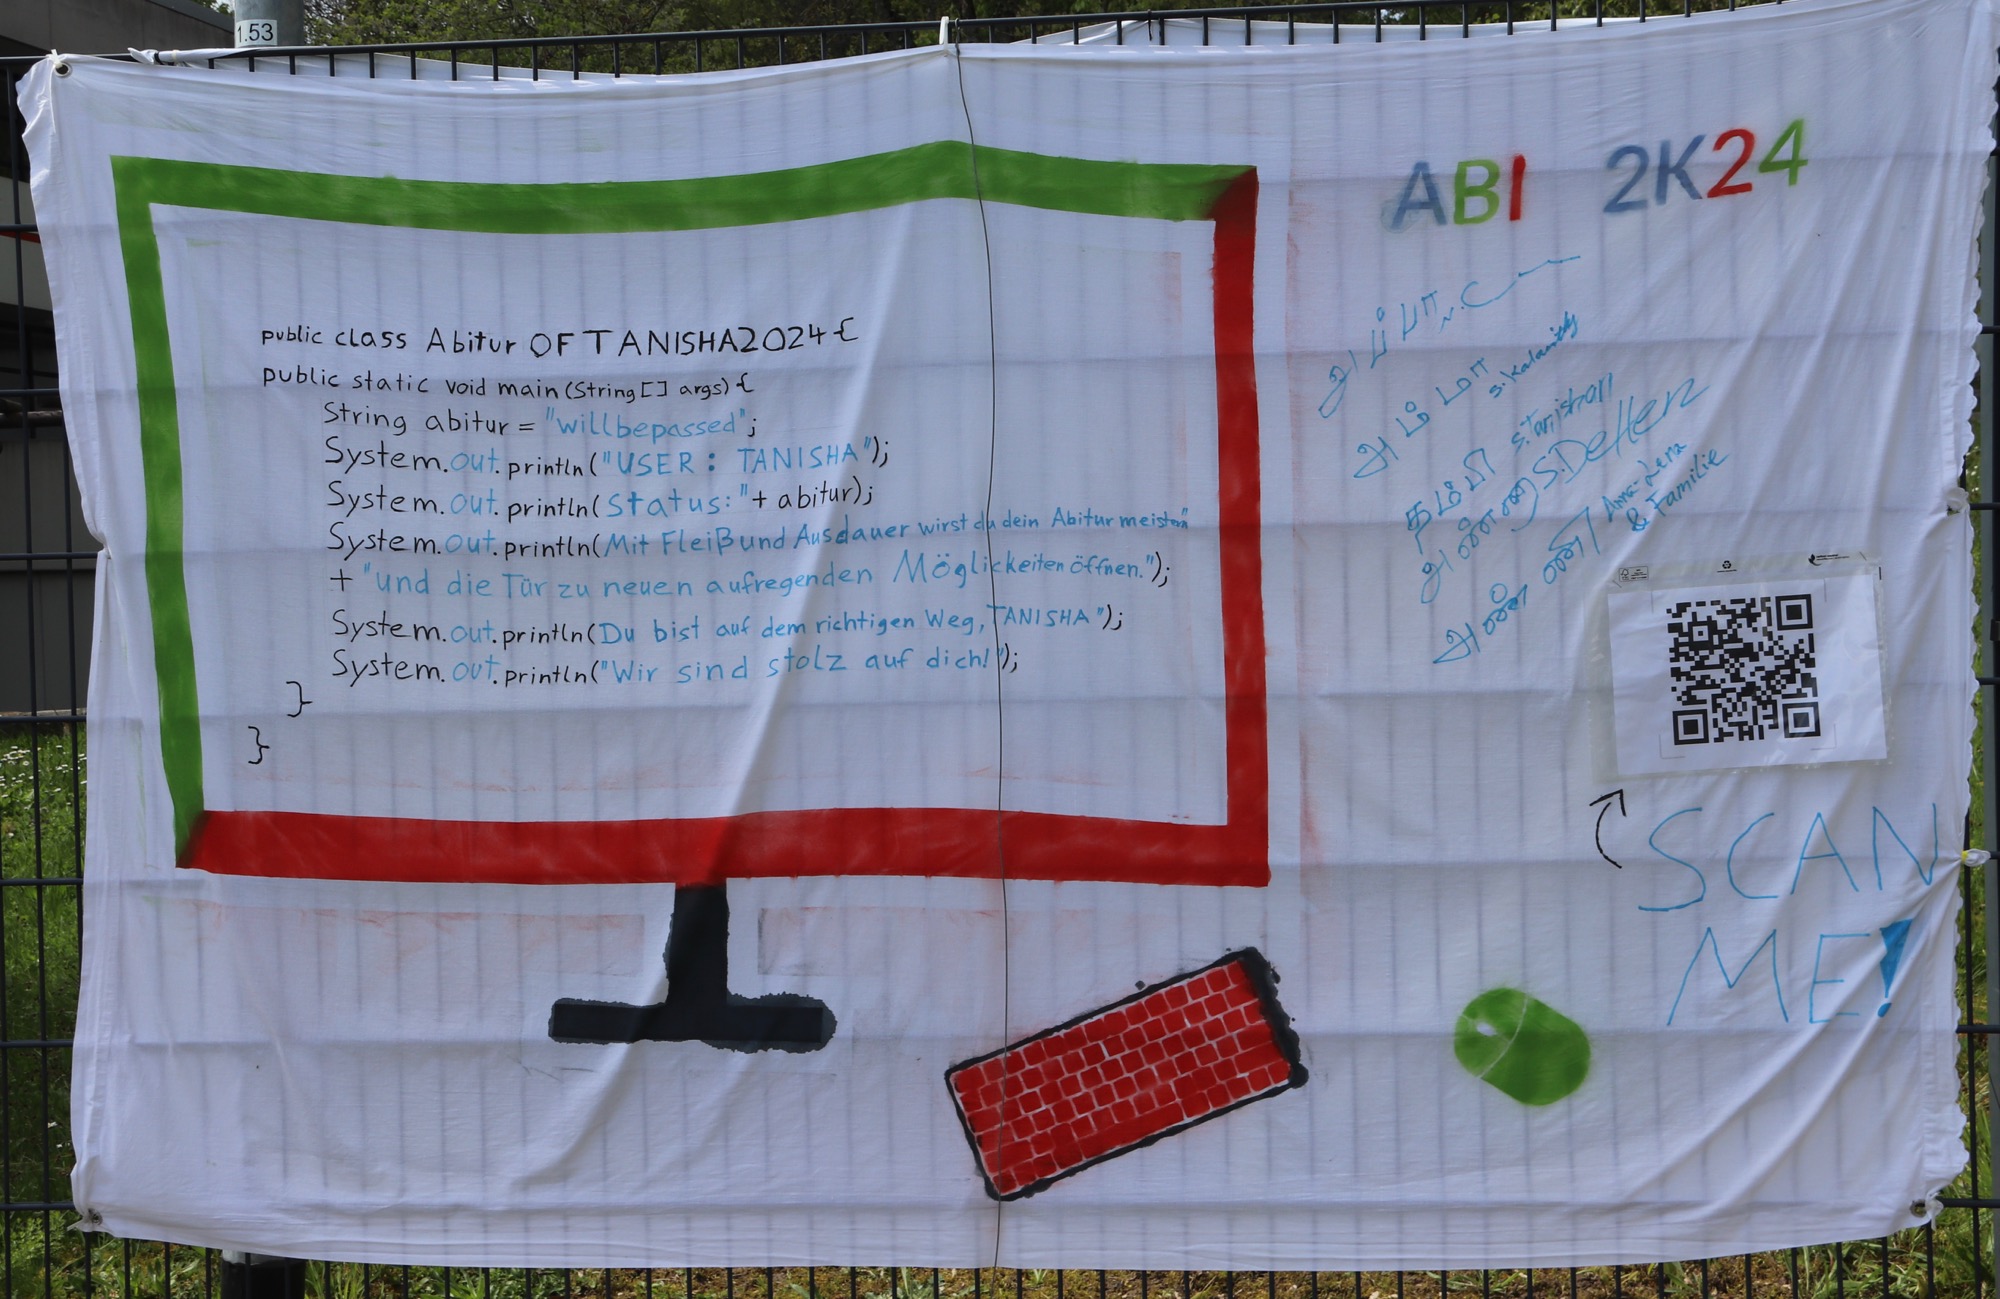 1.53
ABI 2K24
public class Abitur OF TANISHA2024{
public static void main (String[] args) {
String abitur = "willbepassed";
System.out.println("USER: TANISHA");
System.out.println(Status:"+ abitur);
System.out.println(Mit Fleiß und Ausdauer wirst du dein Abitur meistern"
+ "und die Tür zu neuen aufregenden Möglickeiten öffnen.");
System.out.println(Du bist auf dem richtigen Weg, TANISHA");
System.out.println("Wir sind stolz auf dich!");
}
}
அப்பா
அம்மா
தம்பி S.Tanishan
அண்ணா
அண்ணி Anna-Lena
& Familie
SCAN
ME!